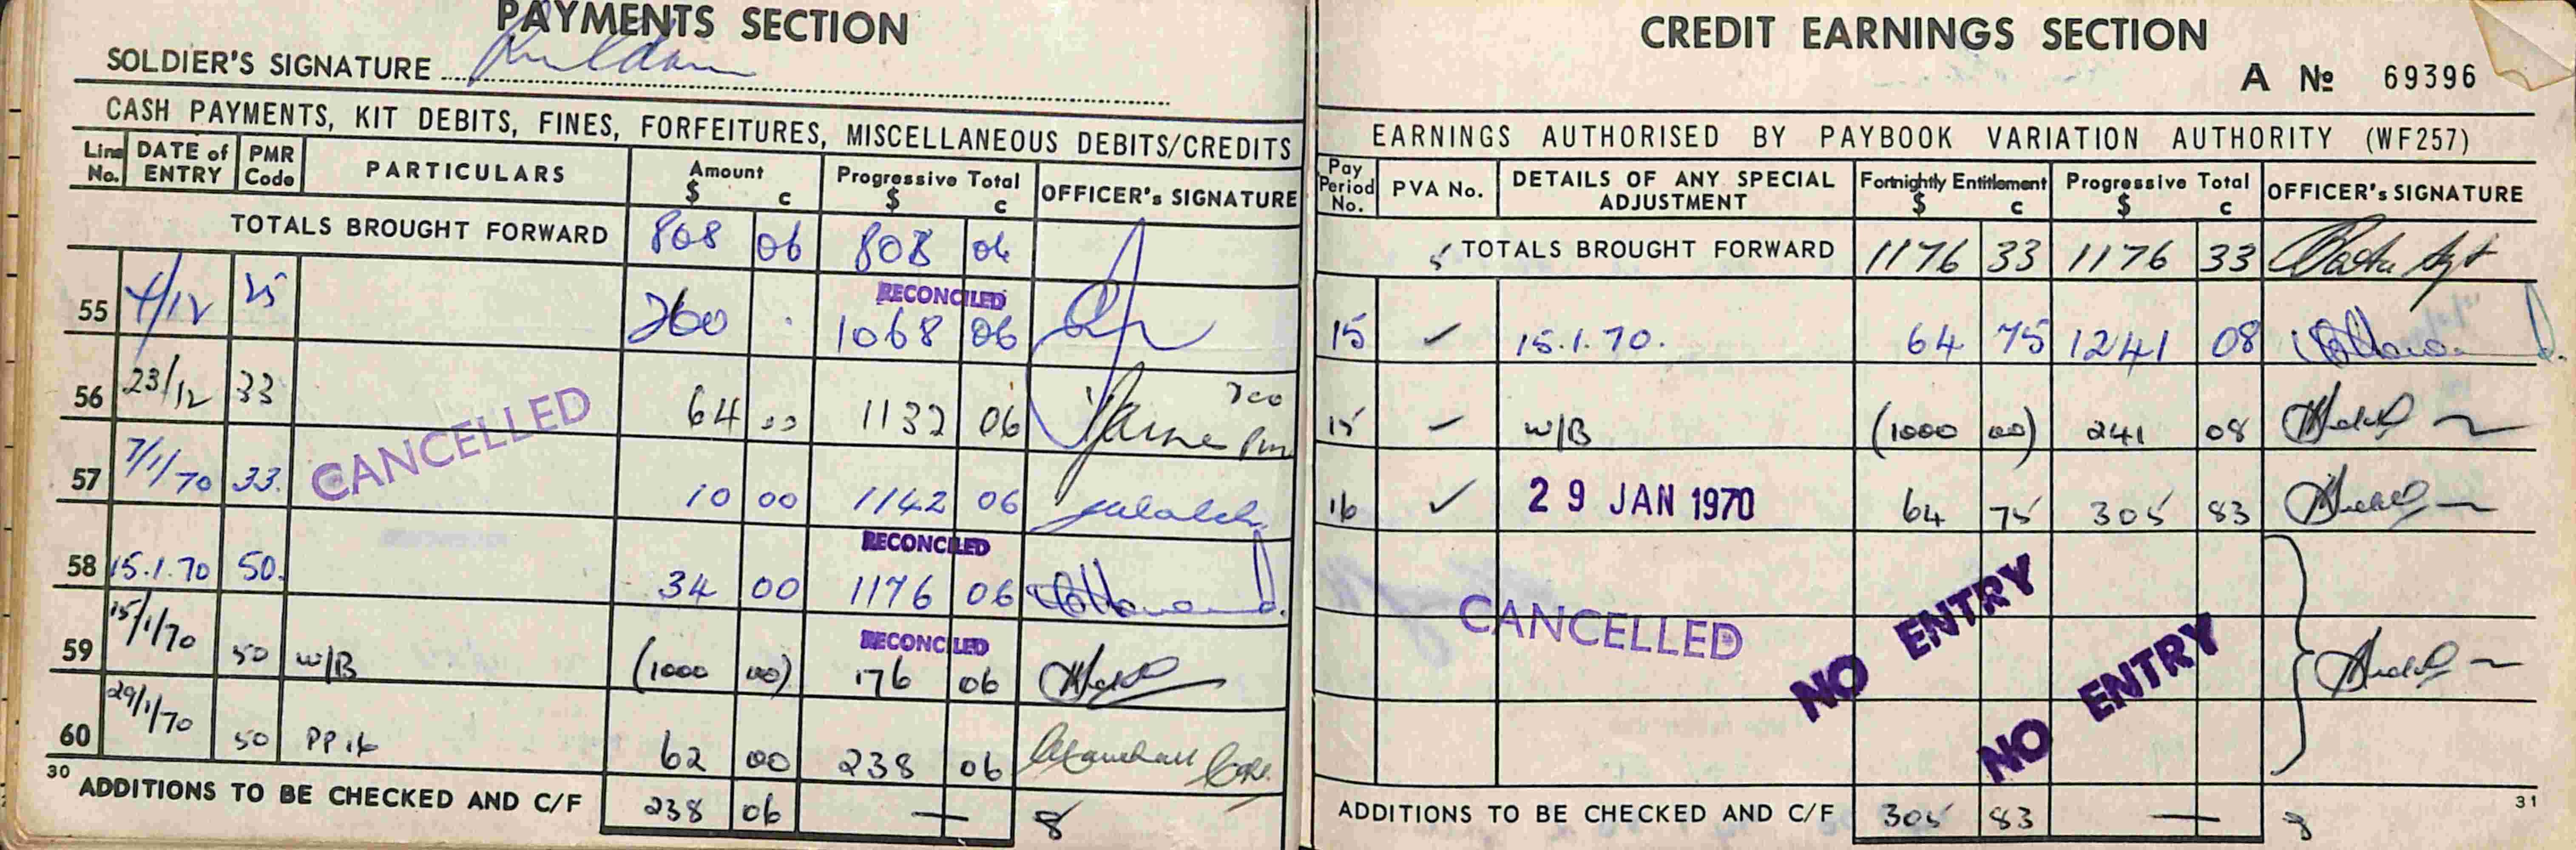 PAYMENTS SECTION
SOLDIER'S SIGNATURE
CASH PAYMENTS, KIT DEBITS, FINES, FORFEITURES, MISCELLANEOUS DEBITS/CREDITS
Line No. DATE of ENTRY PMR Code PARTICULARS Amount $ c Progressive Total $ c OFFICER's SIGNATURE
TOTALS BROUGHT FORWARD 808 06 808 06
RECONCILED
55 4/12 25 260 . 1068 06
56 23/12 33 64 00 1132 06
CANCELLED
57 7/1/70 33. 10 00 1142 06
RECONCILED
58 15.1.70 50. 34 00 1176 06
RECONCILED
59 15/1/70 50 W/B (1000 00) 176 06
60 29/1/70 50 PP 16 62 00 238 06
30 ADDITIONS TO BE CHECKED AND C/F 238 06 — 8
CREDIT EARNINGS SECTION
A No 69396
EARNINGS AUTHORISED BY PAYBOOK VARIATION AUTHORITY (WF257)
Pay Period No. PVA No. DETAILS OF ANY SPECIAL ADJUSTMENT Fortnightly Entitlement $ c Progressive Total $ c OFFICER's SIGNATURE
TOTALS BROUGHT FORWARD 1176 33 1176 33
15 ✓ 15.1.70. 64 75 1241 08
15 – W/B (1000 00) 241 08
16 ✓ 29 JAN 1970 64 75 305 83
CANCELLED
NO ENTRY
NO ENTRY
31
ADDITIONS TO BE CHECKED AND C/F 305 83 — 8